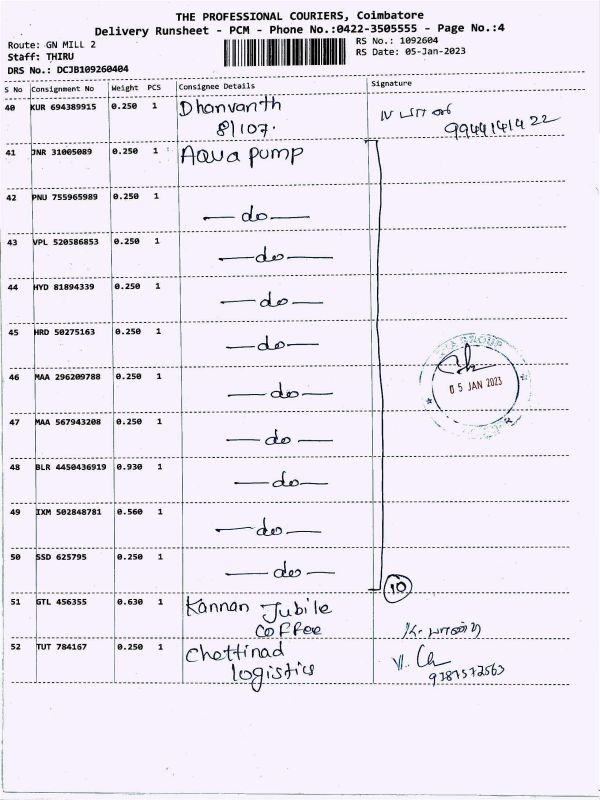 THE PROFESSIONAL COURIERS, Coimbatore
Delivery Runsheet - PCM - Phone No.:0422-3505555 - Page No.:4
Route: GN MILL 2
RS No.: 1092604
Staff: THIRU
RS Date: 05-Jan-2023
DRS No.: DCJB109260404
S No Consignment No Weight PCS Consignee Details Signature
40 KUR 694389915 0.250 1 Dhanvanth
8/107.
9944141422
41 JNR 31005089 0.250 1 Aqua pump
42 PNU 755965989 0.250 1 — do —
43 VPL 520586853 0.250 1 — do —
44 HYD 81894339 0.250 1 — do —
45 HRD 50275163 0.250 1 — do —
46 MAA 296209788 0.250 1 — do —
05 JAN 2023
47 MAA 567943208 0.250 1 — do —
48 BLR 4450436919 0.930 1 — do —
49 IXM 502848781 0.560 1 — do —
50 SSD 625795 0.250 1 — do —
10
51 GTL 456355 0.630 1 Kannan Jubile
coffee
52 TUT 784167 0.250 1 Chettinad
logistics